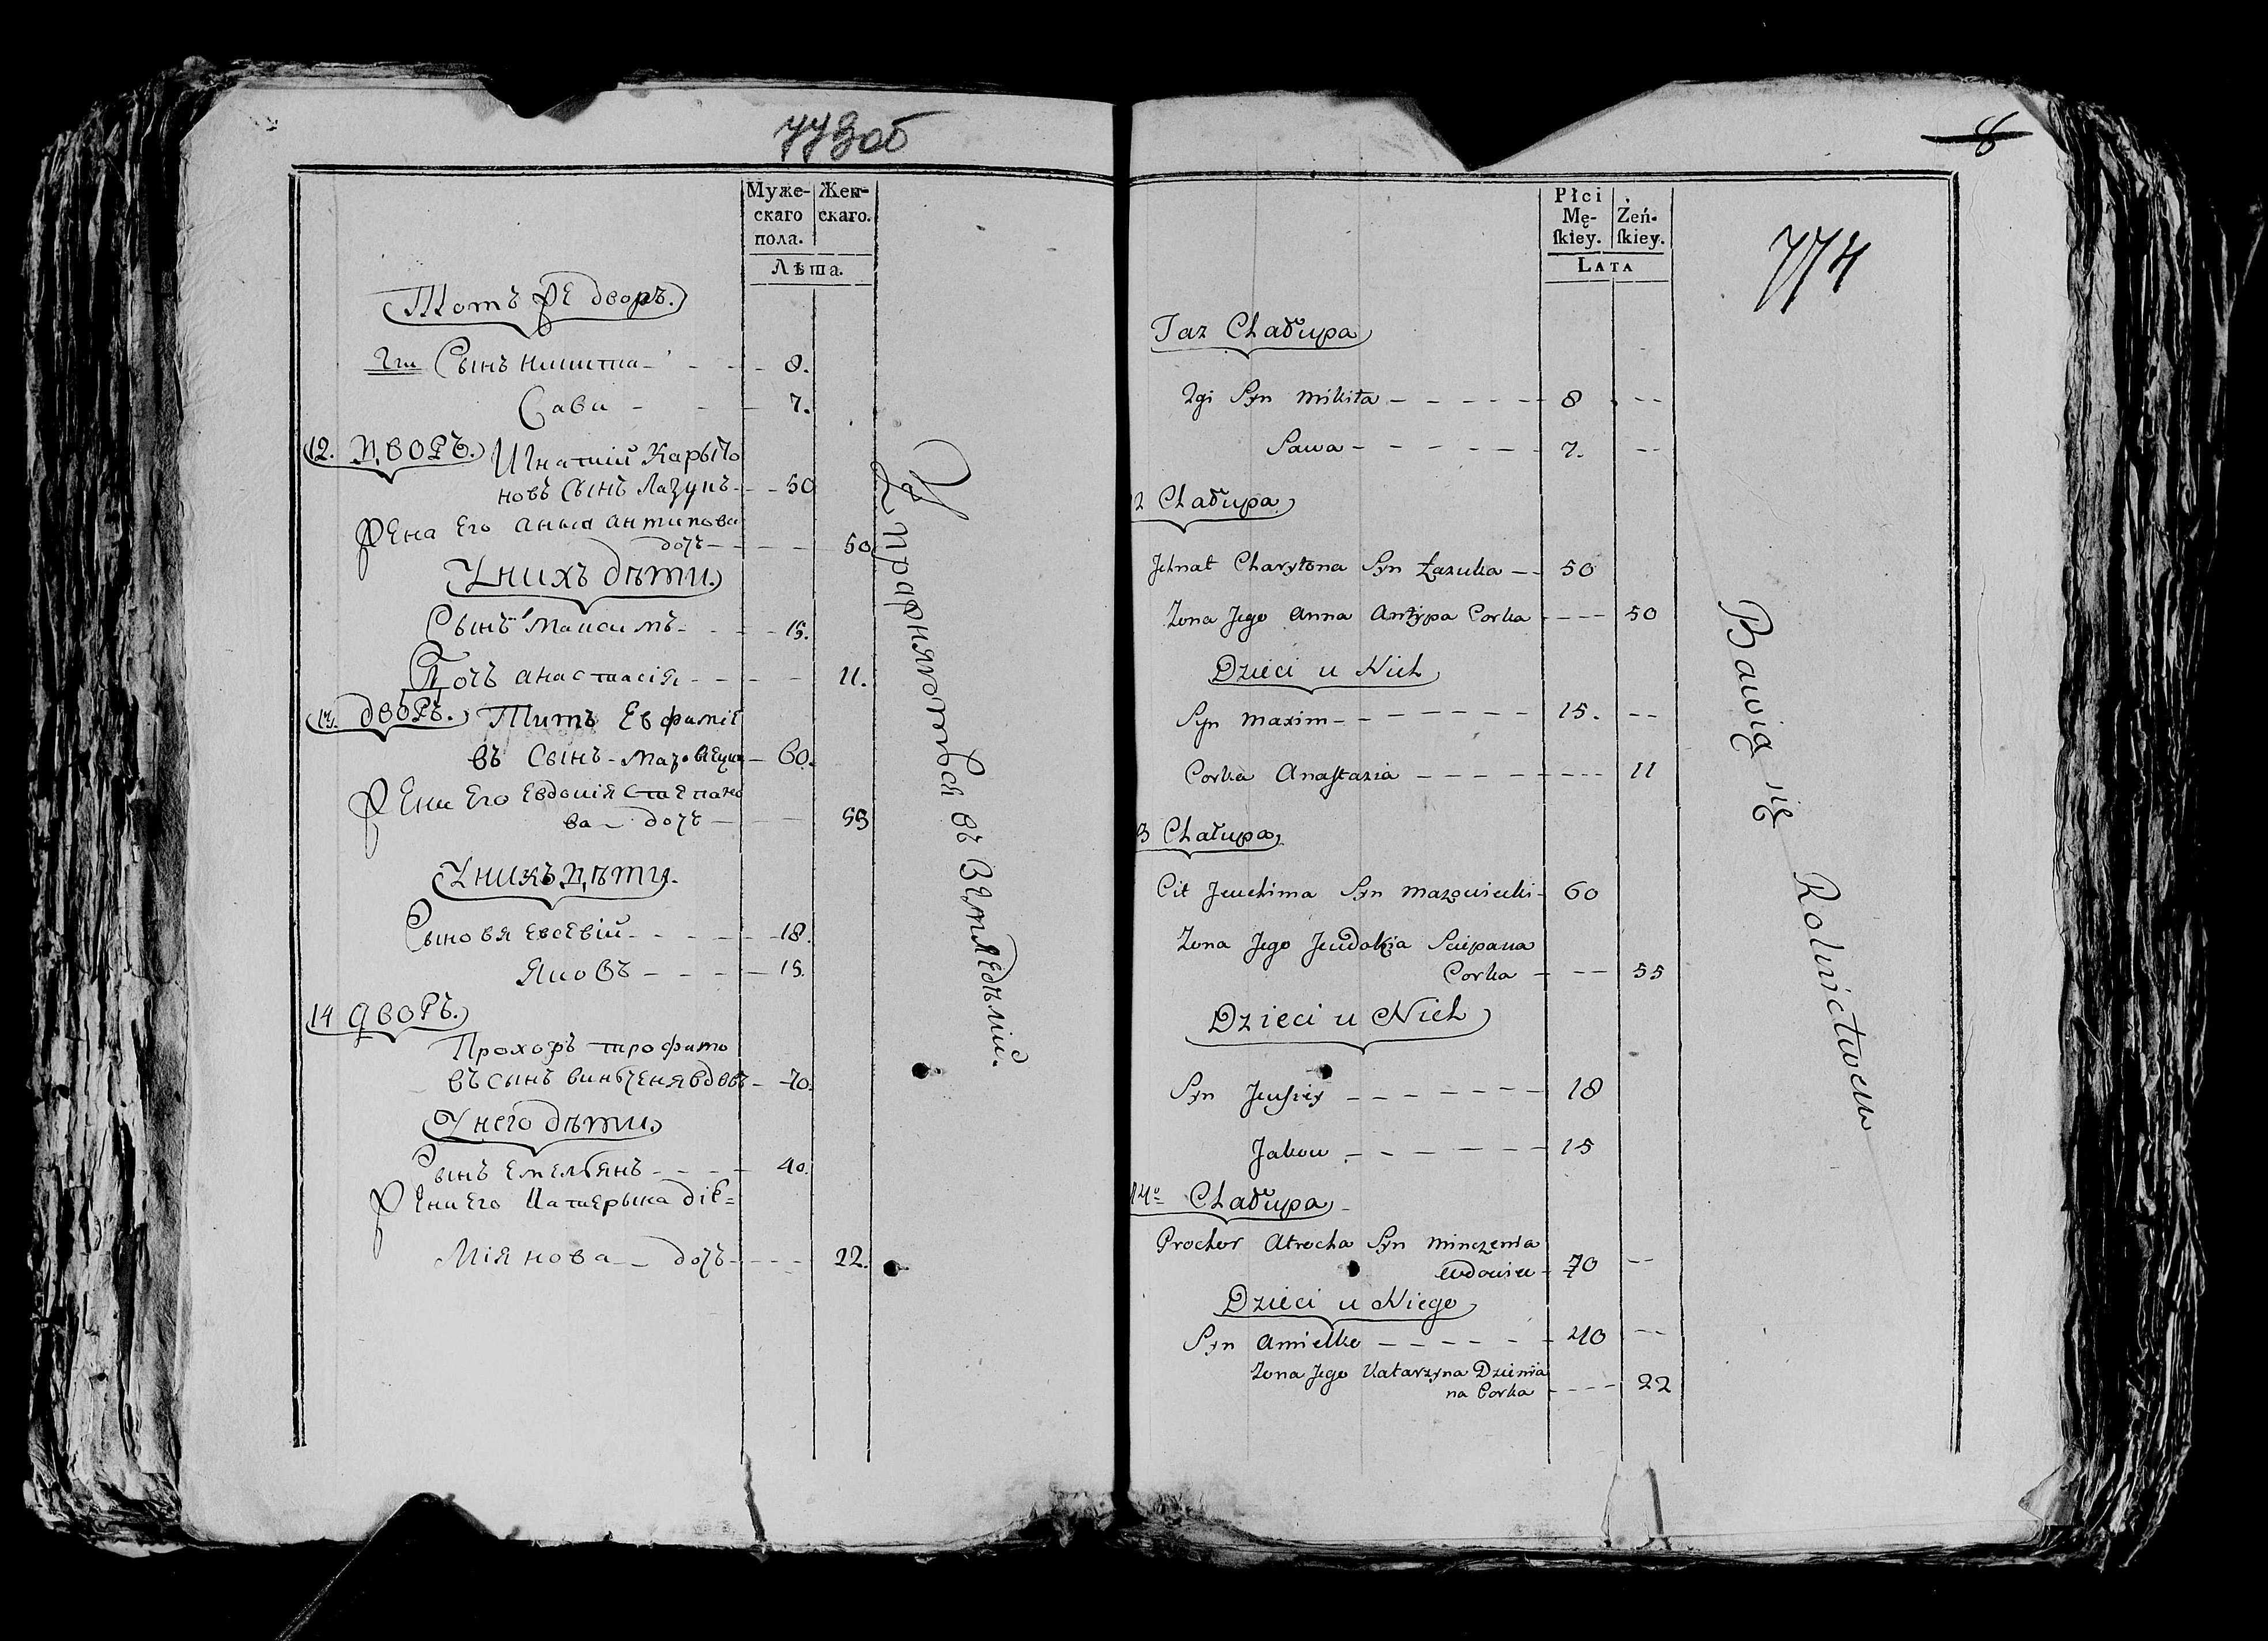 773об
Муже-
скаго
пола.
Жен-
скаго.
Лѣта.
Тотъ же дворъ.
2ги Сынъ Никита 8.
Сава 7.
12. Дворъ. Игнатий Карыто
новъ Сынъ Лазукъ 50
Жена Его Анна Антипова
дочь 50
У нихъ дѣти
Сынъ Максимъ 15.
Дочь Анастасія 11.
13. Дворъ. Титъ Евфиміе
въ Сынъ Мазовецки 60.
Жена Его Евдокія Степано
ва дочь 55
У нихъ дѣти.
Сыновя Евсевій 18.
Яковъ 15.
14 Дворъ.
Прохоръ Трофимо
въ сынъ вдовъ 70.
У него дѣти
Сынъ Емельянъ 40.
Жена Его Катерына
Міянова дочь 22.
Упражняються въ Земледѣліи.
8
774
Płci
Mę-
ſkiey.
Żeń-
ſkiey.
LATA
Taz Chałupa
2gi Syn Mikita 8
Sawa 7.
2 Chałupa
Jhnat Charytona Syn Łazuka 50
Zona Jego Anna Antypa Corka 50
Dzieci u Nich
Syn Maxim 15.
Corka Anaſtazia 11
3 Chałupa
Cit Jeuchima Syn Mazowiecki 60
Zona Jego Jeudokia Sciepana
Corka 55
Dzieci u Nich
Syn Jeuſiey 18
Jakow 15
14º Chałupa
Prochor Atrocha Syn Minczenia
Wdowiec 70
Dzieci u Niego
Syn Amielko 40
Zona Jego Katarzyna Dziemia
na Corka 22
Bawią się Rolnictwem